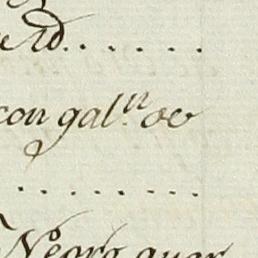 Id.......
con gal.ⁿ de
........
Negro guar